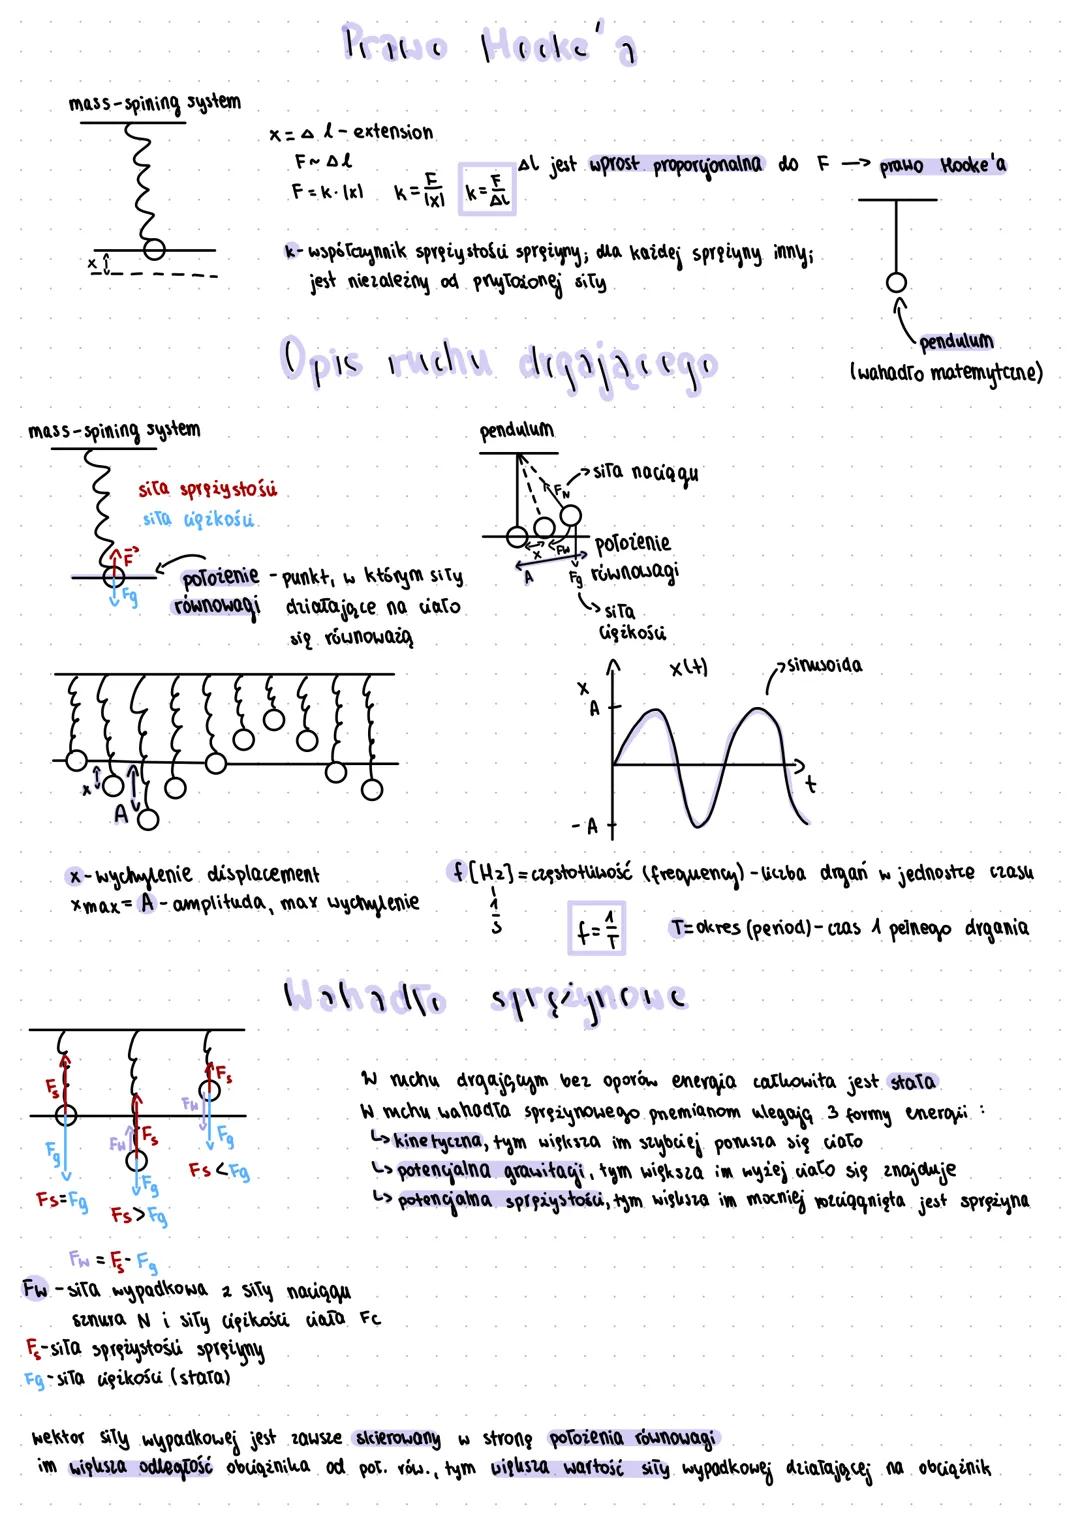 Prawo Hooke'a
mass-spining system
x = Δ l - extension
F ~ Δl
F = k · |x|   k = F/|x|   k = F/Δl
Δl jest wprost proporcjonalna do F → prawo Hooke'a
x
k - współczynnik sprężystości sprężyny; dla każdej sprężyny inny;
jest niezależny od przyłożonej siły
pendulum
(wahadło matemytczne)
Opis ruchu drgającego
mass-spining system
siła sprężystości
siła ciężkości
F
Fg
położenie równowagi - punkt, w którym siły
działające na ciało
się równoważą
pendulum
siła naciągu
FN
x
Fw
A
Fg
położenie
równowagi
siła
ciężkości
x
A
x(t)
sinusoida
x
A
t
- A
x - wychylenie displacement
xmax = A - amplituda, max wychylenie
f [Hz] = częstotliwość (frequency) - liczba drgań w jednostce czasu
1/s
f = 1/T
T = okres (period) - czas 1 pełnego drgania
Wahadło sprężynowe
Fs
Fg
Fs = Fg
Fw
Fs
Fg
Fs > Fg
Fs
Fw
Fg
Fs < Fg
W ruchu drgającym bez oporów energia całkowita jest stała
W ruchu wahadła sprężynowego przemianom ulegają 3 formy energii :
↳ kinetyczna, tym większa im szybciej porusza się ciało
↳ potencjalna grawitacji, tym większa im wyżej ciało się znajduje
↳ potencjalna sprężystości, tym większa im mocniej rozciągnięta jest sprężyna
Fw = Fs - Fg
Fw - siła wypadkowa z siły naciągu
sznura N i siły ciężkości ciała Fc
Fs - siła sprężystości sprężyny
Fg - siła ciężkości (stała)
wektor siły wypadkowej jest zawsze skierowany w stronę położenia równowagi
im większa odległość obciążnika od poł. rów., tym większa wartość siły wypadkowej działającej na obciążnik